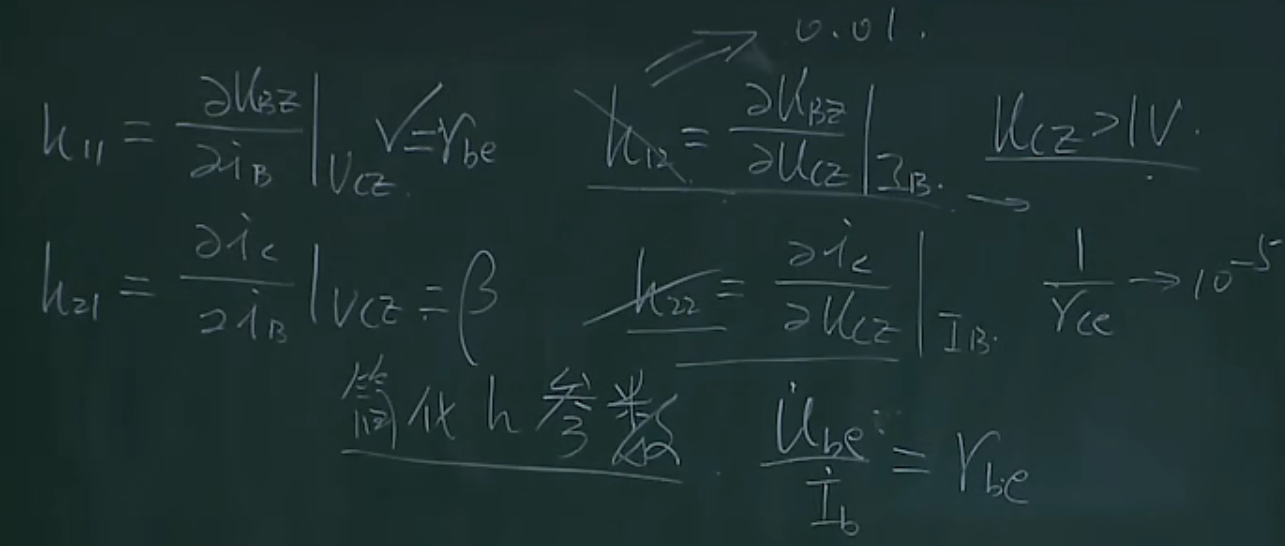 → 0.01.
h₁₁ = ∂u_BE/∂i_B |_{U_CE} = r_be
h₁₂ = ∂u_BE/∂u_CE |_{I_B}. u_CE > 1V.
h₂₁ = ∂i_C/∂i_B |_{U_CE} = β
h₂₂ = ∂i_C/∂u_CE |_{I_B}. → 1/r_ce → 10⁻⁵
简化h参数
U̇_be/İ_b = r_be